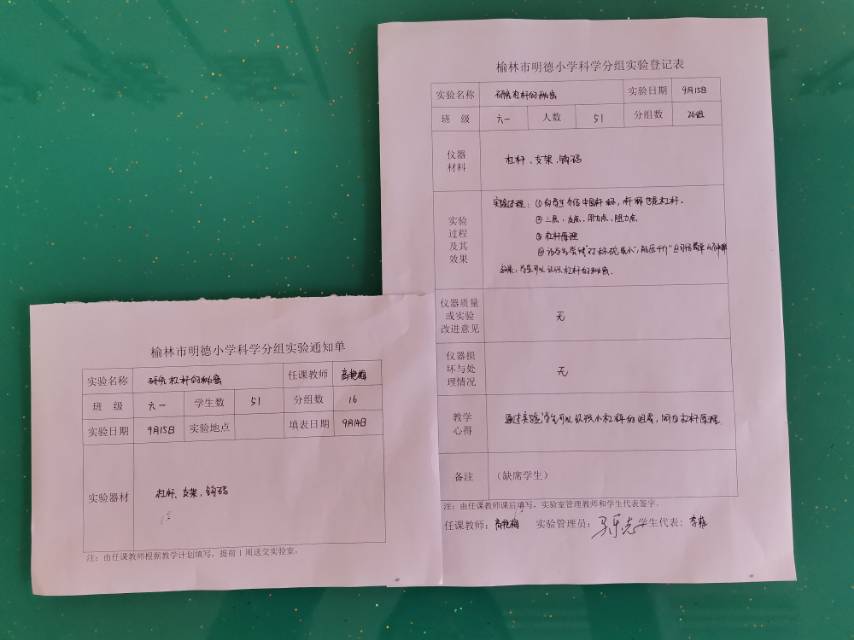 榆林市明德小学科学分组实验通知单
实验名称 研究杠杆的秘密 任课教师
班 级 六一 学生数 51 分组数 16
实验日期 9月15日 实验地点 填表日期 9月14日
实验器材 杠杆、支架、钩码
注：由任课教师根据教学计划填写，提前1周送交实验室。
榆林市明德小学科学分组实验登记表
实验名称 研究杠杆的秘密 实验日期 9月15日
班 级 六一 人数 51 分组数
仪器
材料
杠杆、支架、钩码
实验
过程
及其
效果
实验过程：①
②三点，支点，用力点，阻力点
③杠杆原理
仪器质量
或实验
改进意见
无
仪器损
坏与处
理情况
无
教学
心得
通过实验，学生可以
备注 （缺席学生）
注：由任课教师课后填写，实验室管理教师和学生代表签字。
任课教师： 实验管理员： 学生代表：